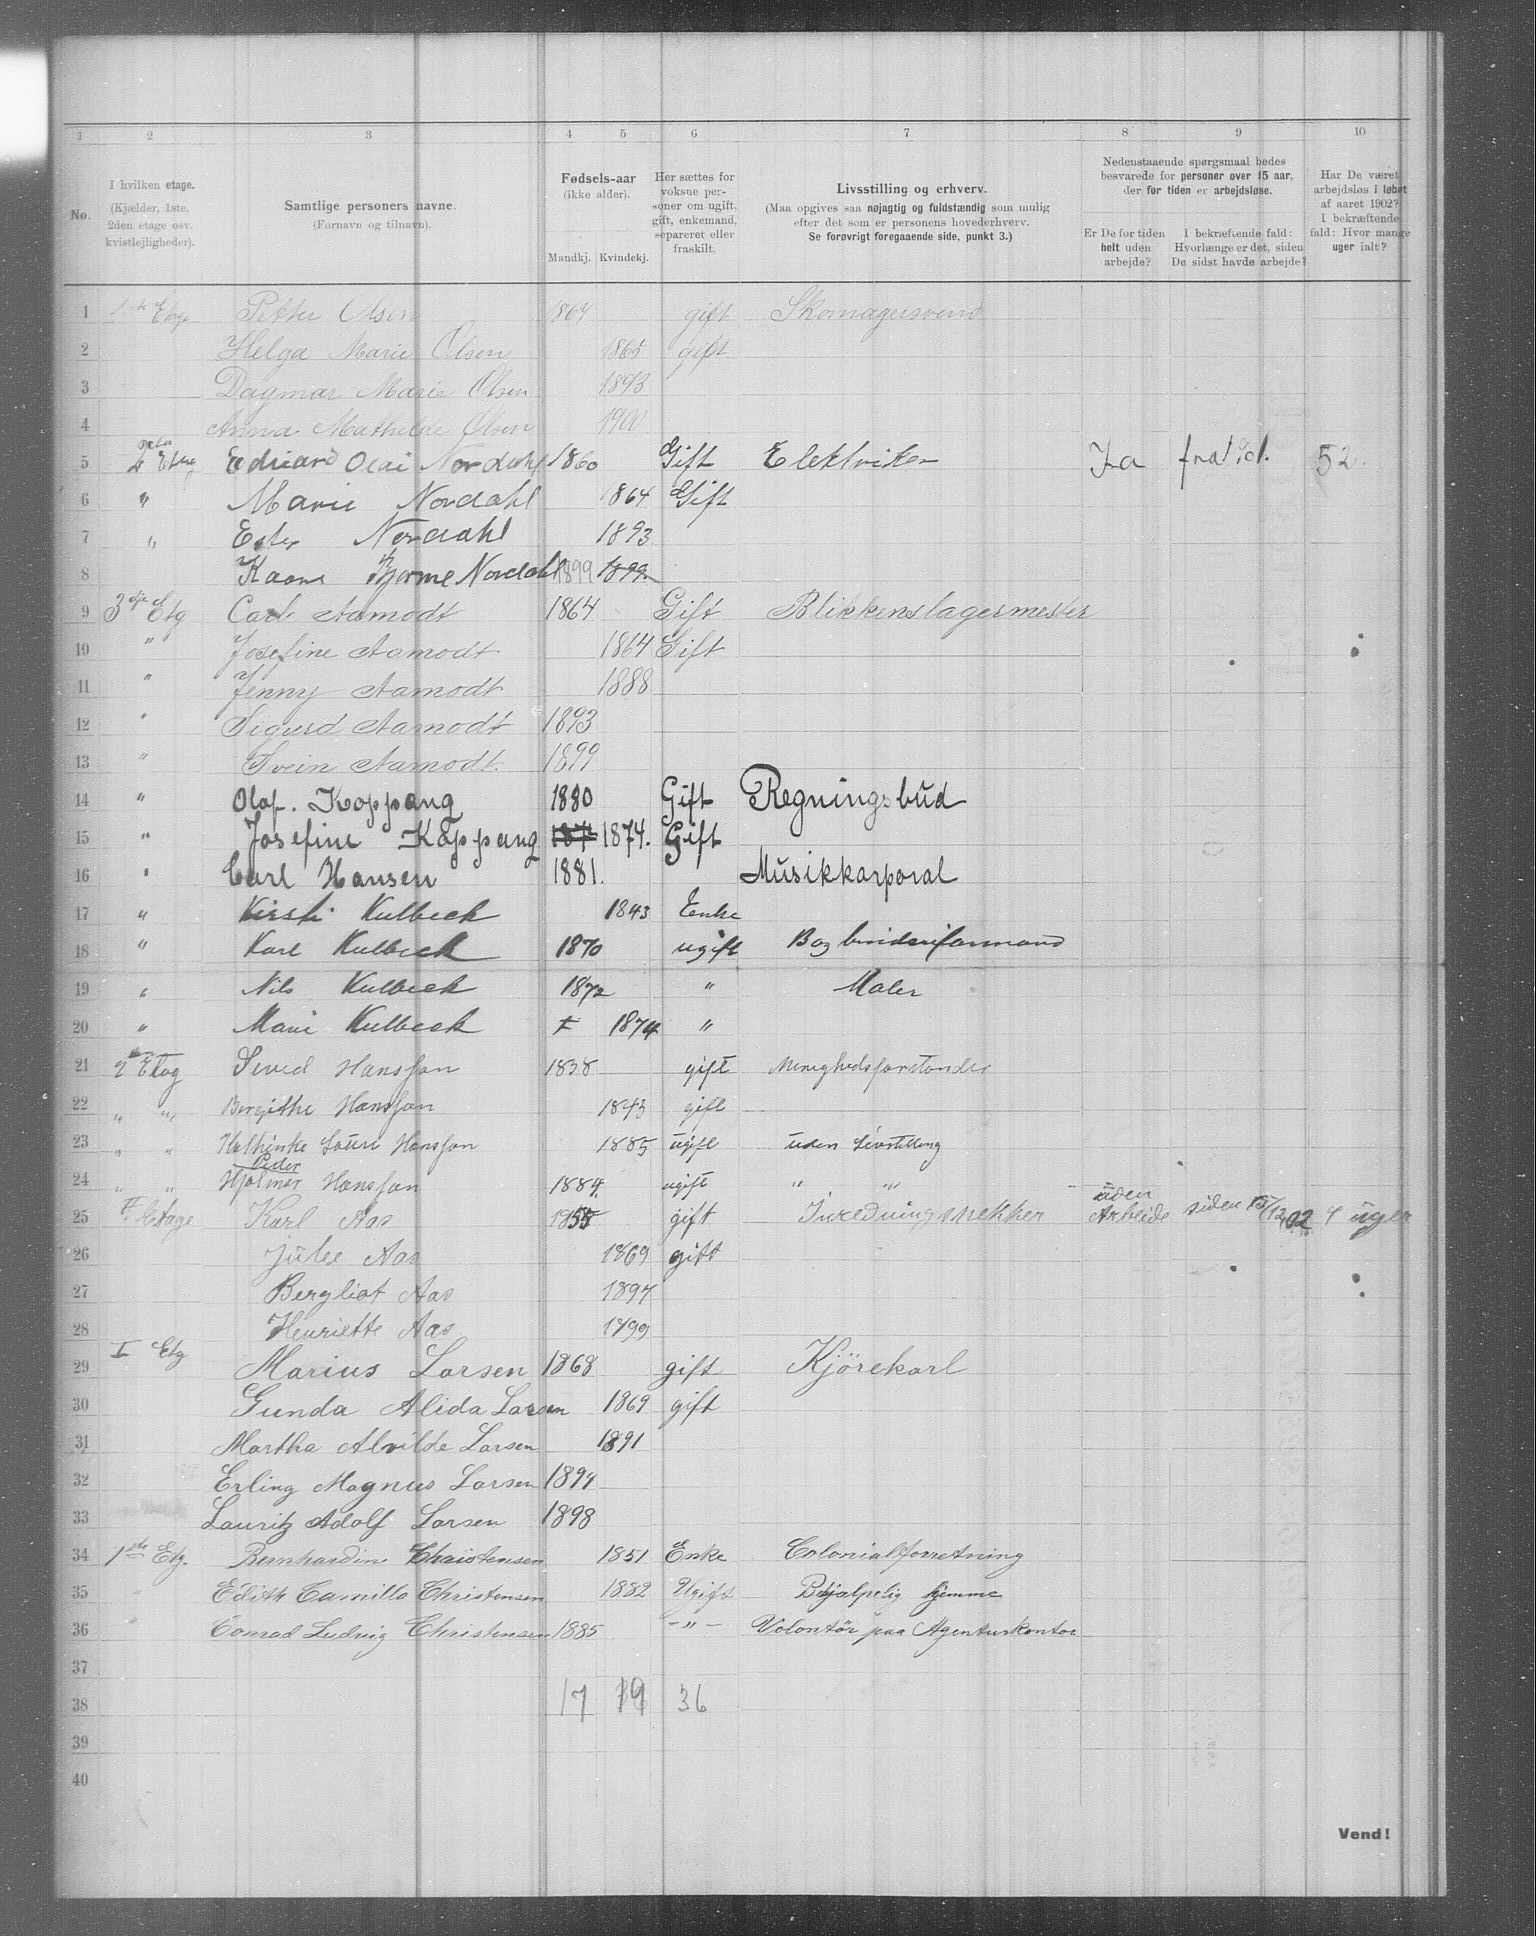 1 2 3 4 5 6 7 8 9 10
No.
I hvilken etage.
(Kjælder, 1ste, 2den etage osv. kvistlejligheder).
Samtlige personers navne.
(Fornavn og tilnavn).
Fødsels-aar
(ikke alder).
Mandkj. Kvindekj.
Her sættes for voksne personer om ugift, gift, enkemand, separeret eller fraskilt.
Livsstilling og erhverv.
(Maa opgives saa nøjagtig og fuldstændig som mulig efter det som er personens hovederhverv.
Se forøvrigt foregaaende side, punkt 3.)
Nedenstaaende spørgsmaal bedes besvarede for personer over 15 aar, der for tiden er arbejdsløse.
Er De for tiden helt uden arbejde?
I bekræftende fald: Hvorlænge er det, siden De sidst havde arbejde?
Har De været arbejdsløs i løbet af aaret 1902? I bekræftende fald: Hvor mange uger ialt?
1 1ste Etge Petter Olsen 1864 gift Skomagersvend
2 Helga Marie Olsen 1865 gift
3 Dagmar Marie Olsen 1893
4 Anna Mathilde Olsen 1900
5 2 Etag Edvard Olai Nordahl 1860 Gift Elektriker Ja fra 52.
6 " Marie Nordahl 1864 Gift
7 " Ester Nordahl 1893
8 Kaare Bjarne Nordahl 1899 1899
9 3dje Etg Carl Aamodt 1864 Gift Blikkenslagermester
10 " Josefine Aamodt 1864 Gift
11 " Jenny Aamodt 1888
12 " Sigurd Aamodt 1893
13 " Svein Aamodt 1899
14 " Olaf. Koppang 1880 Gift Regningsbud
15 " Josefine Koppang 1874. Gift
16 " Carl Hansen 1881. Musikkorporal
17 " Kirsti Kulbeck 1843 Enke
18 " Karl Kulbeck 1870 ugift Bogbinderiformand
19 " Nils Kulbeck 1872 " Maler
20 " Marie Kulbeck 1874 "
21 2 Etag Sived Hansson 1838 gift Menighedsforstander
22 " " Bergithe Hansson 1843 gift
23 " " Kathinke Lauri Hansson 1885 ugift uden Livsstilling
24 " " Hjalmar Peder Hansson 1884 ugift " "
25 II Etage Karl Aas 1855 gift Inredningsnekker uden Arbeide siden 15/12 02 4 uger
26 Julie Aas 1869 gift
27 Bergliot Aas 1897
28 Henriette Aas 1899
29 I Etg Marius Larsen 1868 gift Kjörekarl
30 Gunda Alida Larsen 1869 gift
31 Martha Alvilde Larsen 1891
32 Erling Magnus Larsen 1894
33 Lauritz Adolf Larsen 1898
34 1ste Etg. Bernhardine Christensen 1851 Enke Colonialforretning
35 " Edith Camilla Christensen 1882 Ugift Behjælpelig hjemme
36 " Conrad Ludvig Christensen 1885 -"- Volontör paa Agenturkontor
37
38 17 19 36
39
40
Vend!